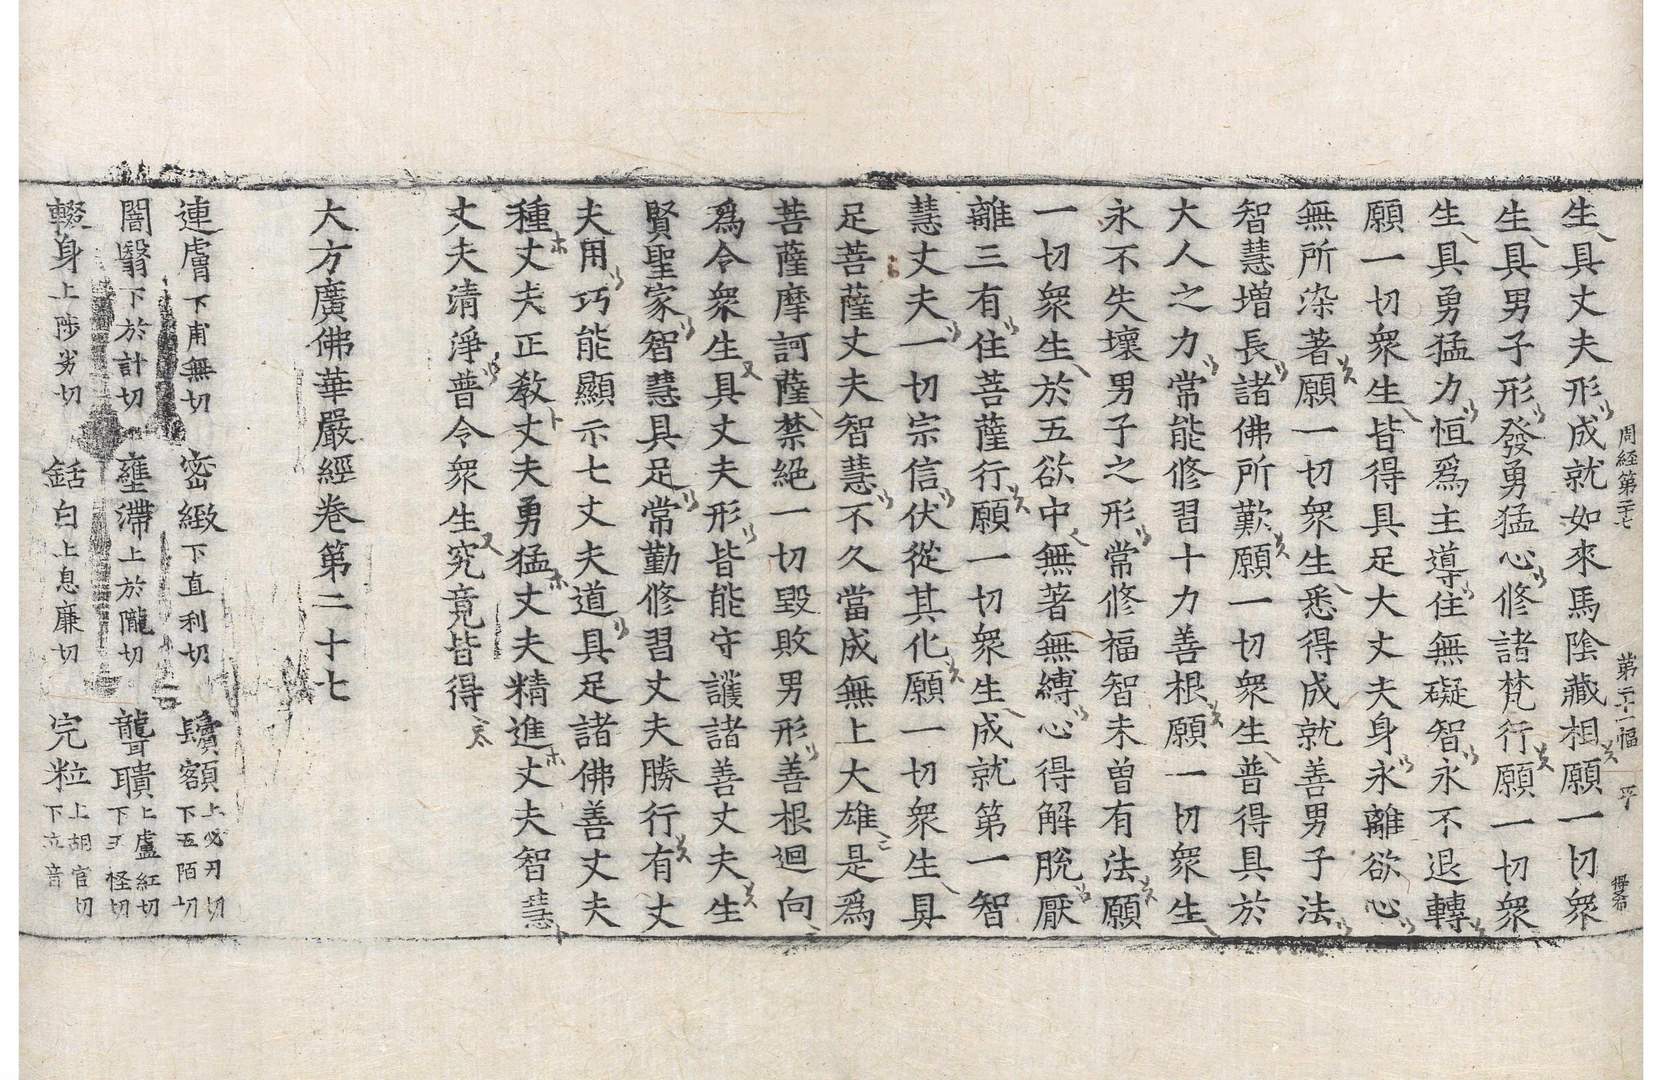 周經第二十七 第二十一幅 平
生具丈夫形成就如來馬陰藏相願一切衆
生具男子形發勇猛心修諸梵行願一切衆
生具勇猛力恒爲主導住無礙智永不退轉
願一切衆生皆得具足大丈夫身永離欲心
無所染著願一切衆生悉得成就善男子法
智慧增長諸佛所歎願一切衆生普得具於
大人之力常能修習十力善根願一切衆生
永不失壞男子之形常修福智未曾有法願
一切衆生於五欲中無著無縛心得解脫厭
離三有住菩薩行願一切衆生成就第一智
慧丈夫一切宗信伏從其化願一切衆生具
足菩薩丈夫智慧不久當成無上大雄是爲
菩薩摩訶薩禁絕一切毀敗男形善根迴向
爲令衆生具丈夫形皆能守護諸善丈夫生
賢聖家智慧具足常勤修習丈夫勝行有丈
夫用巧能顯示七丈夫道具足諸佛善丈夫
種丈夫正教丈夫勇猛丈夫精進丈夫智慧
丈夫清淨普令衆生究竟皆得
大方廣佛華嚴經卷第二十七
連膚下甫無切 密緻下直利切 鬢額上必刃切下五陌切
闇翳下於計切 壅滯上於隴切 聾聵上盧紅切下五怪切
輟身上陟劣切 銛白上息廉切 完粒上胡官切下立音